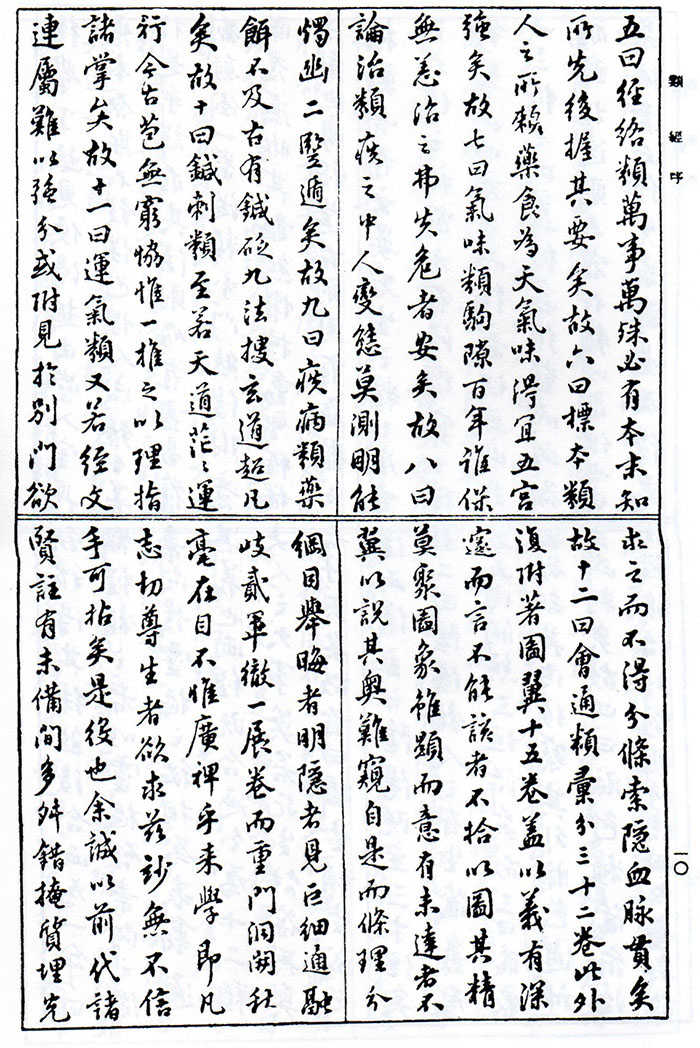 類經序
五曰經絡類萬事萬殊必有本末知
所先後握其要矣故六曰標本類
人之所賴藥食為天氣味得宜五宮
強矣故七曰氣味類駒隙百年誰保
無恙治之弗失危者安矣故八曰
論治類疾之中人變態莫測明能
燭幽二豎遁矣故九曰疾病類藥
餌不及古有鍼砭九法搜玄道超凡
矣故十曰鍼刺類至若天道茫〻運
行今古苞無窮協惟一推之以理指
諸掌矣故十一曰運氣類又若經文
連屬難以強分或附見於別門欲
求之而不得分條索隱血脉貫矣
故十二曰會通類彙分三十二卷此外
復附著圖翼十五卷蓋以義有深
邃而言不能該者不拾以圖其精
莫聚圖象雖顯而意有未達者不
翼以說其奧難窺自是而條理分
綱目舉晦者明隱者見巨細通融
歧貳畢徹一展卷而重門洞闢秋
毫在目不惟廣裨乎來學即凡
志切尊生者欲求茲妙無不信
手可拈矣是役也余誠以前代諸
賢註有未備間多舛錯掩質埋光
一〇